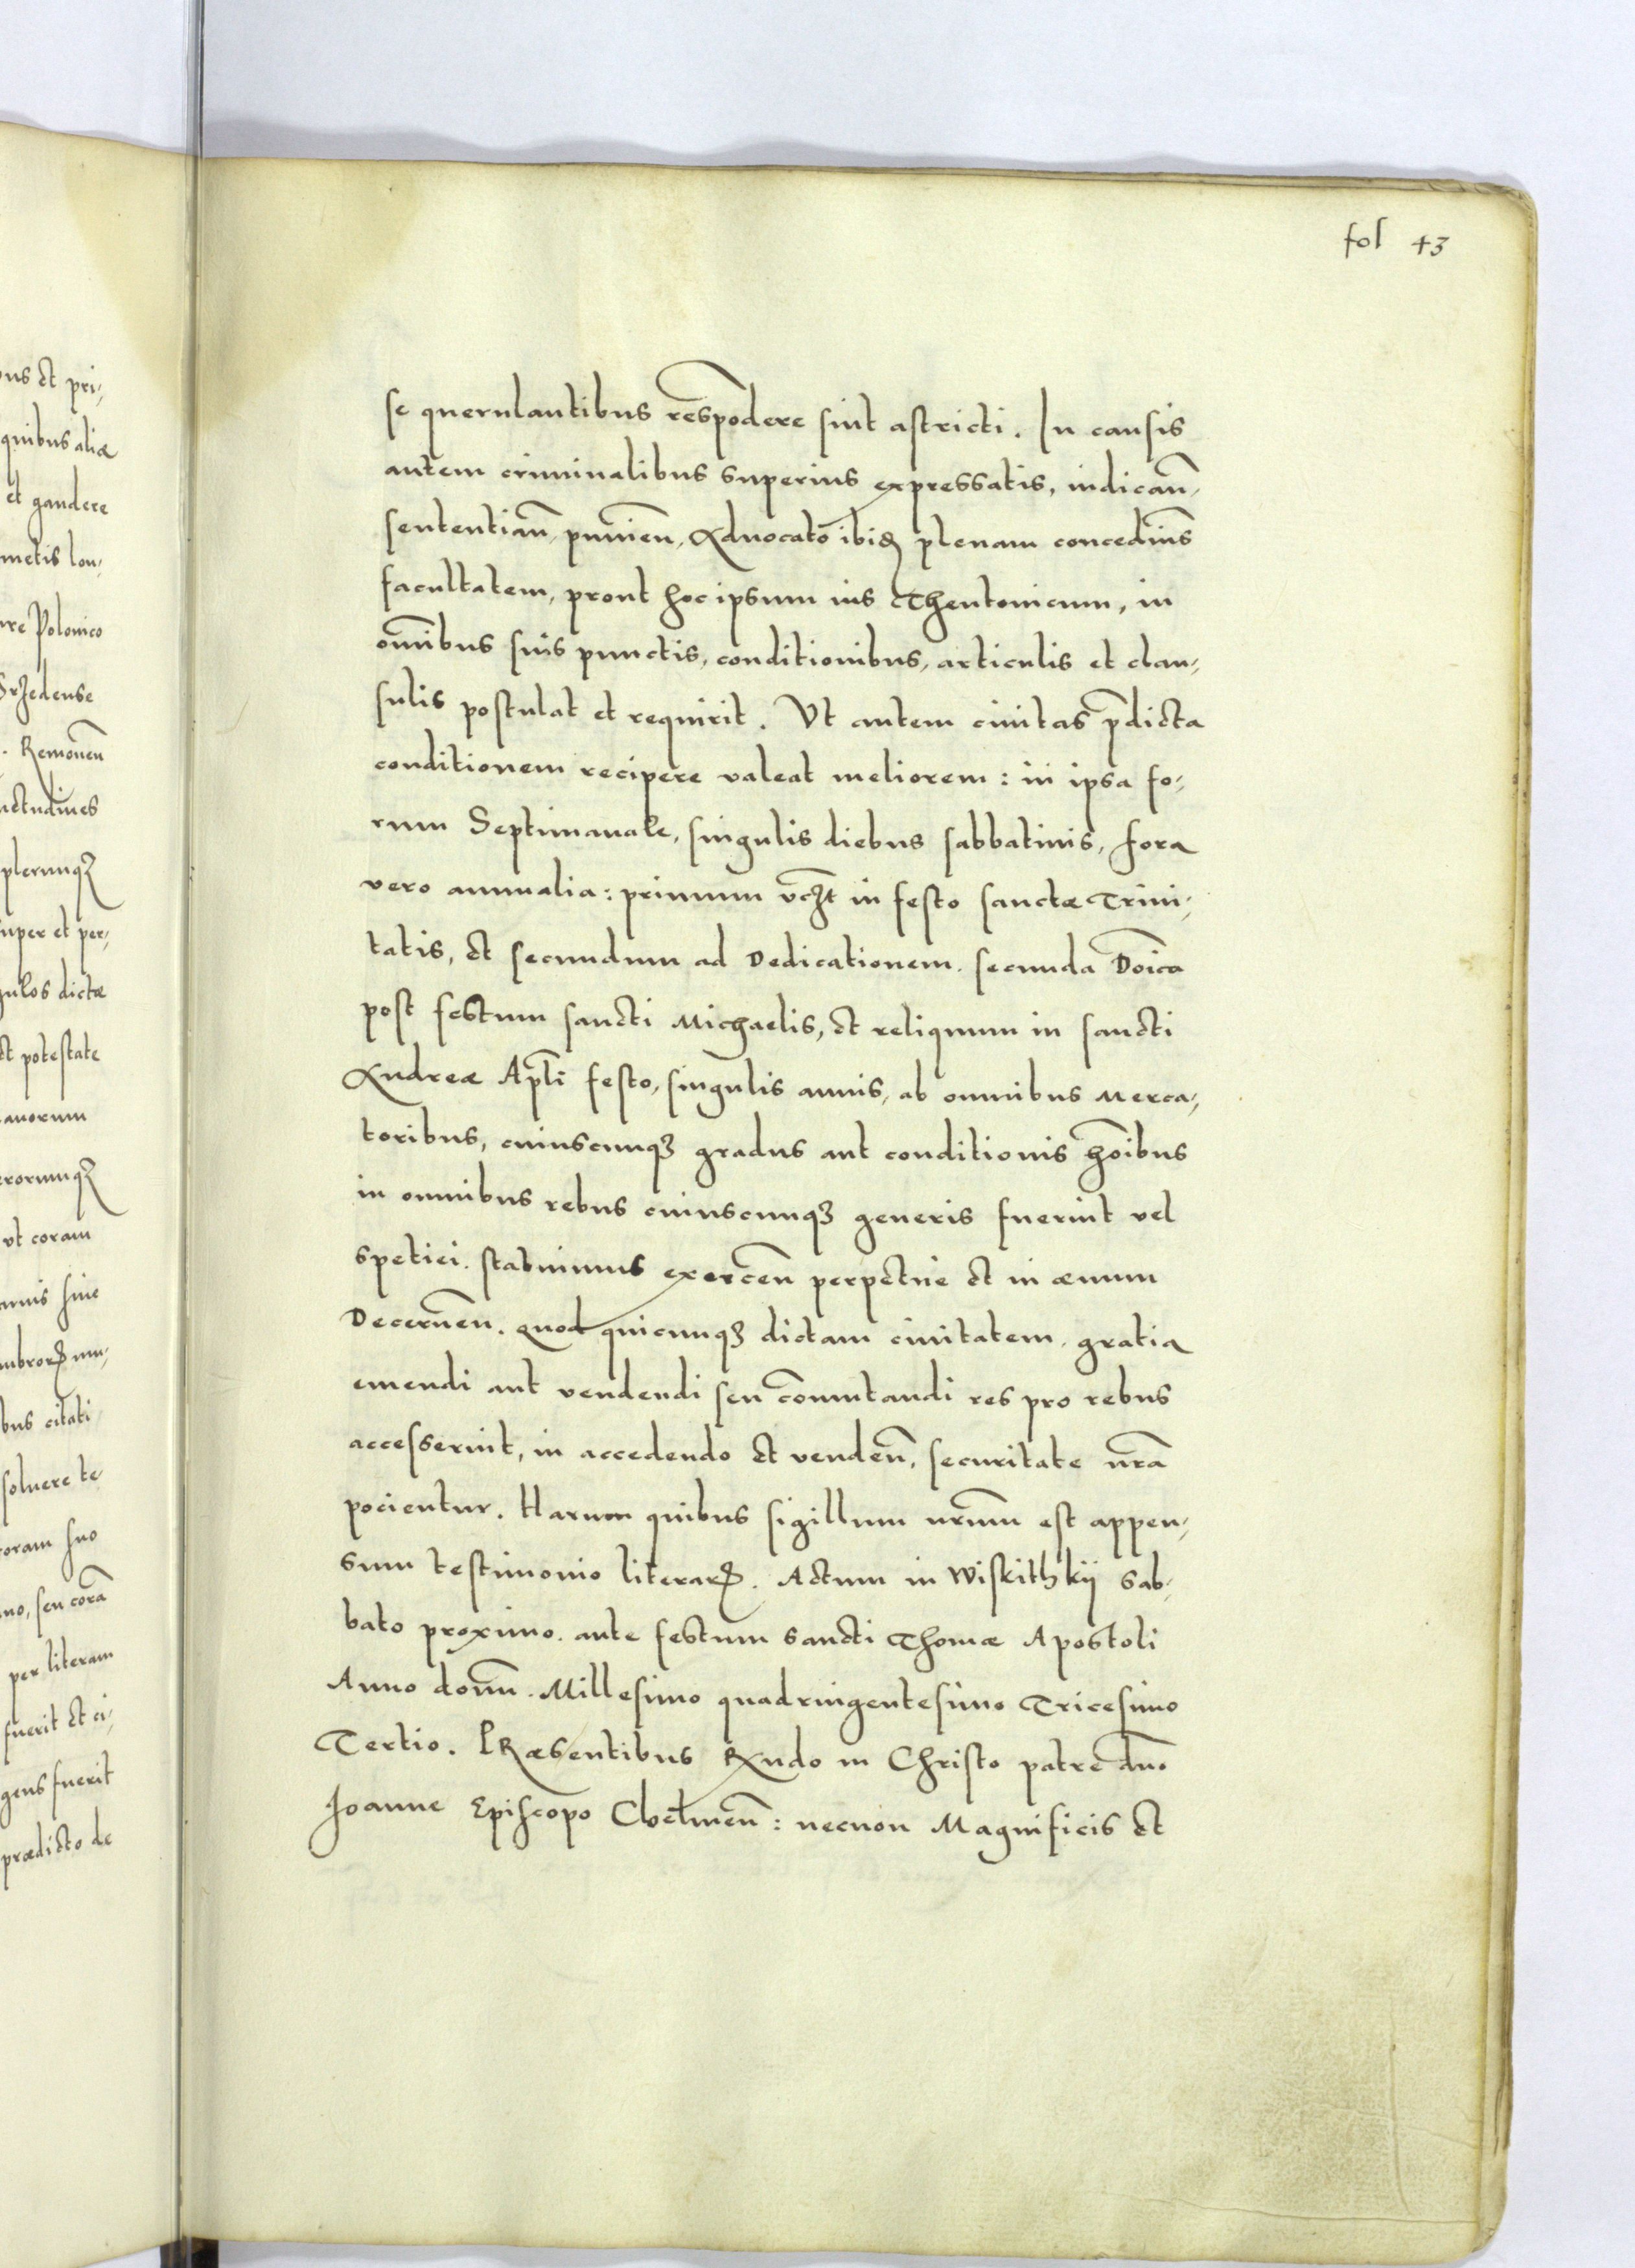 fol 43
se querulantibus respōdere sint astricti. In causis
autem criminalibus superius expressatis, iudican̄,
sententian̄, punien̄, Aduocato ibidē plenam concedim̄s
facultatem, prout hoc ipsum ius Theutonicum, in
om̄ibus suis punctis, conditionibus, articulis et clau,
sulis postulat et requirit. Vt autem ciuitas p̄dicta
conditionem recipere valeat meliorem: in ipsa fo,
rum Septimanale, singulis diebus sabbatinis, fora
vero annualia: primum vcꝫt in festo sanctæ Trini,
tatis, et secundum ad Dedicationem. secunda Doīca
post festum sancti Michaelis, et reliquum in sancti
Andreæ Apl̄i festo, singulis annis, ab omnibus Merca,
toribus, cuiuscunqꝫ gradus aut conditionis hoībus
in omnibus rebus cuiuscunqꝫ generis fuerint vel
spetiei. statuimus exercen̄ perpetue et in æuum
Decernen̄. quod quicunqꝫ dictam ciuitatem. gratia
emendi aut vendendi seu cōmutandi res pro rebus
accesserint, in accedendo et venden̄, securitate nr̄a
pocientur. Harum quibus sigillum nr̄um est appen,
sum testimonio literaꝝ. Actum in Wiskithkij Sab,
bato proximo. ante festum Sancti Thomæ Apostoli
Anno domī. Millesimo quadringentesimo Tricesimo
Tertio. PRæsentibus Rxndo in Christo patre dn̄o
Joanne Episcopo Choelmen̄: necnon Magnificis et
ous et pri,
quibus aliæ
et gaudere
metis lon,
ure Polonico
Srzedense
. Remouen̄
uetudines
plerunqꝫ
super et per,
gulos dictæ
et potestate
auorum
erorumqꝫ
vt coram
siue
mbroꝝ mu,
bus citati
soluere te
coram suo
no, seu corā
per literam
fuerit et ci,
gens fuerit
prædicto de